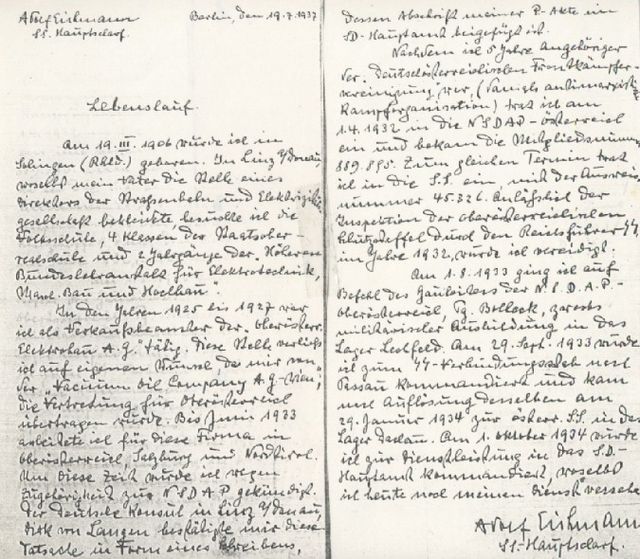 Adolf Eichmann
SS. Hauptscharf.
Berlin, den 19.7.1937
Lebenslauf.
Am 19. III. 1906 wurde ich in
Solingen (Rhld.) geboren. In Linz a/Donau,
woselbst mein Vater die Stelle eines
Direktors der Strassenbahn und Elektrizitäts
gesellschaft bekleidete, besuchte ich die
Volksschule, 4 Klassen der Staatsober-
realschule und 2 Jahrgänge der "Höheren
Bundeslehranstalt für Elektrotechnik,
Masch. Bau und Hochbau".
In den Jahren 1925 bis 1927 war
ich als Verkaufsbeamter der "Oberösterr.
Elektrobau A.G." tätig. Diese Stelle verließ
ich auf eigenen Wunsch, da mir von
der "Vacuum Oil Company A.G. Wien",
die Vertretung für Oberösterreich
übertragen wurde. Bis Juni 1933
arbeitete ich für diese Firma in
Oberösterreich, Salzburg und Nordtirol.
Um diese Zeit wurde ich wegen
Zugehörigkeit zur NSDAP gekündigt.
Der deutsche Konsul in Linz a/Donau,
Dirk von Langen bestätigte mir diese
Tatsache in Form eines Schreibens,
dessen Abschrift meiner P-Akte im
SD-Hauptamt beigefügt ist.
Nachdem ich 5 Jahre Angehöriger
der "Deutschösterreichischen Frontkämpfer-
vereinigung" war, (damals antimarxistische
Kampforganisation) trat ich am
1.4.1932 in die NSDAP-Österreich
ein und bekam die Mitgliedsnummer
889.895. Zum gleichen Termin trat
ich in die SS. ein, mit der Ausweis
nummer 45326. Anläßlich der
Inspektion der oberösterreichischen
Schutzstaffel durch den Reichsführer SS,
im Jahre 1932, wurde ich vereidigt.
Am 1.8.1933 ging ich auf
Befehl des Gauleiters der N.S.D.A.P.-
Oberösterreich, Pg. Bolleck, zwecks
militärischer Ausbildung in das
Lager Lechfeld. Am 29. Sept. 1933 wurde
ich zum SS-Verbindungsstab nach
Passau kommandiert und kam
nach Auflösung desselben am
29. Januar 1934 zur österr. S.S. in das
Lager Dachau. Am 1. Oktober 1934 wurde
ich zur Dienstleistung in das S.D.-
Hauptamt kommandiert, woselbst
ich heute noch meinen Dienst versehe.
Adolf Eichmann
SS-Hauptscharf.